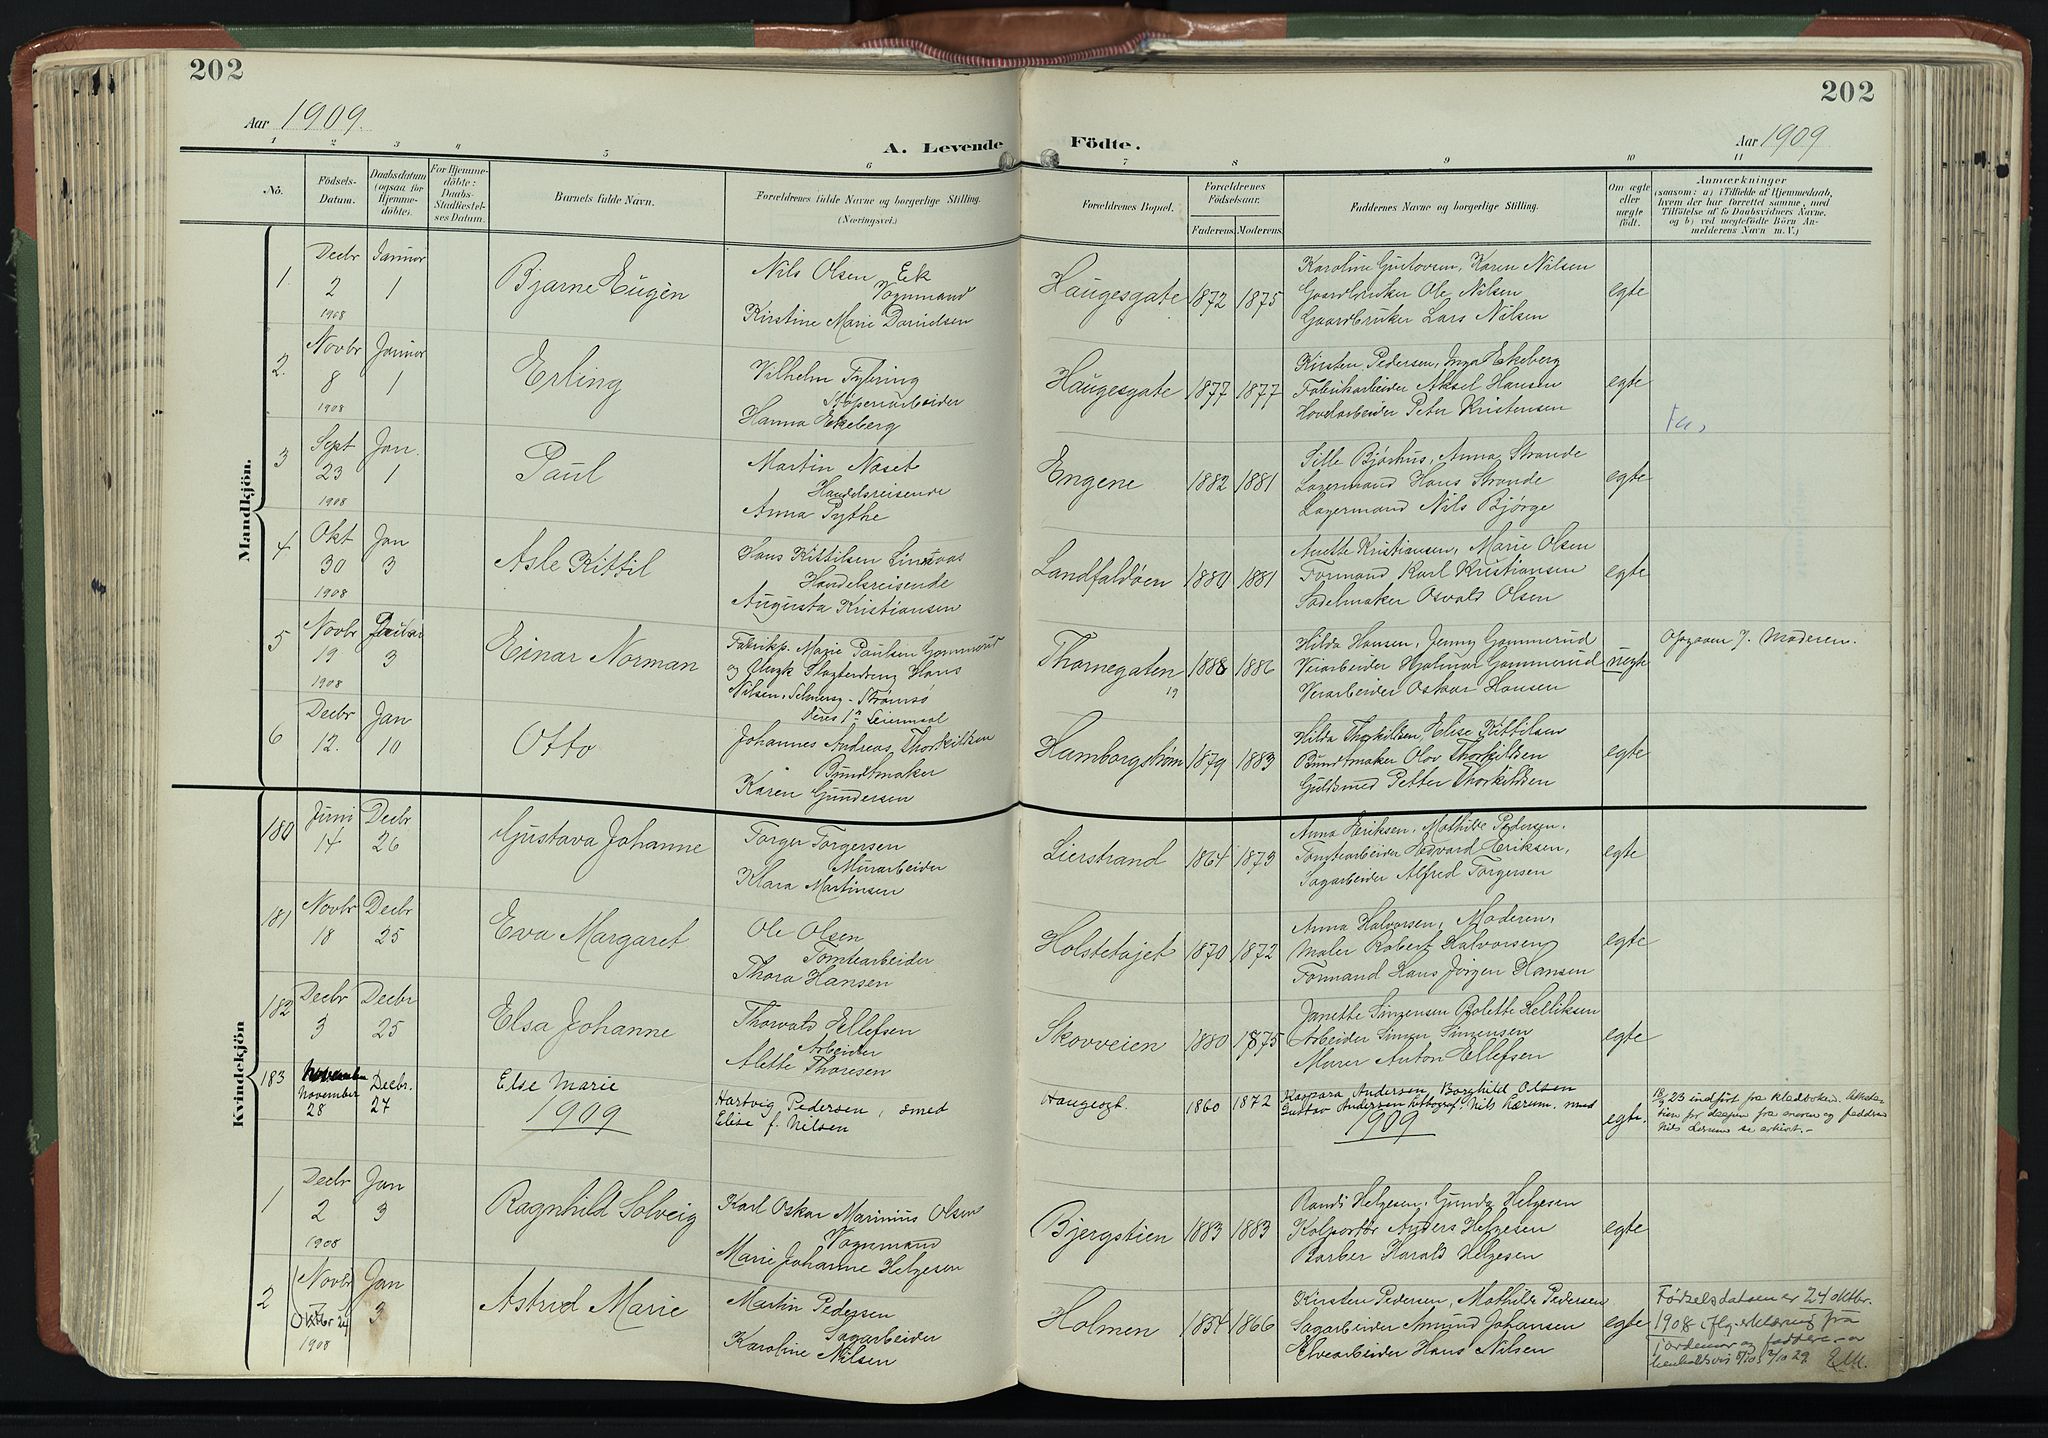 202
202
Aar 1909.
Aar 1909
A. Levende Födte.
1 2 3 4 5 6 7 8 9 10 11
Nö.
Födsels-Datum.
Daabsdatum (ogsaa for Hjemmedöbte).
For Hjemmedöbte: Daabs-Stadfæstelses Datum.
Barnets fulde Navn.
Forældrenes fulde Navne og borgerlige Stilling. (Næringsvei.)
Forældrenes Bopæl.
Forældrenes Födselsaar.
Faderens. Moderens.
Faddernes Navne og borgerlige Stilling.
Om ægte eller uægte födt.
Anmærkninger
(saasom: a) i Tilfælde af Hjemmedaab, hvem der har forrettet samme, med Tilföielse af to Daabsvidners Navne, og b) ved uægtefödte Börn Anmelderens Navn m. V.)
Mandkjön.
1. Decbr 2 1908 Januar 1 Bjarne Eugèn
Nils Olsen Eek
Vognmand
Kirstine Marie Danielsen
Haugesgate 1872 1875
Karoline Gustavsen, Karen Nilsen
Gaardbruker Ole Nilsen
Gaardbruker Lars Nilsen
egte
2. Novbr 8 1908 Januar 1 Erling
Vilhelm Fybring
Støperiarbeider
Hanna Ekeberg
Haugesgate 1877 1877
Kirsten Pedersen, Inga Ekeberg
Fabrikarbeider Aksel Hansen
Høvelarbeider Peter Kristensen
egte
3 Sept 23 1908 Jan. 1 Paul
Martin Næset
Handelsreisende
Anna Pythe
Engene 1882 1881
Sille Bjørhus, Anna Strande
Lagermand Hans Strande
Lagermand Nils Bjørge
egte
4 Okt 30 1908 Jan 3 Asle Kittil
Hans Kittilsen Lindaas
Handelsreisende
Augusta Kristiansen
Landfaldøen 1880 1881
Anette Kristiansen, Marie Olsen
Formand Karl Kristiansen
Sadelmaker Osvald Olsen
egte
5 Novbr 19 1908 3 Einar Norman
Fabrikp. Marie Paulsen Gommerud
og Ungk Slagterdreng Hans
Nilsen, Selmersg - Strømsø
Deres 1ste Leiermaal
Thornegaten 19 1888 1886
Hilda Hansen, Jenny Gommerud
Veiarbeider Hjalmar Gommerud
Veiarbeider Oskar Hansen
uegte
Opgaven f. Moderen.
6 Decbr 12. Jan 10 Otto
Johannes Andreas Thorkildsen
Bundtmaker
Karen Gundersen
Hamborgstrøm 1879 1883
Hilda Thorkildsen, Elise Kittilsen
Bundtmaker Olav Thorkildsen
Guldsmed Petter Thorkildsen
egte
Kvindekjön
180 Juni 14 Decbr 26 Gustava Johanne
Torger Torgersen
Murarbeider
Klara Martinsen
Lierstrand 1864 1873
Anna Eriksen, Mathilde Pedersen.
Tomtearbeider Edvard Eriksen,
Sagarbeider Alfred Torgersen
egte
181 Novbr 18 Decbr 25 Eva Margaret
Ole Olsen
Tomtearbeider
Thora Hansen
Holstetøjet 1870 1872
Anna Halvorsen, Moderen,
Maler Robert Halvorsen
Formand Hans Jørgen Hansen
egte
182 Decbr 3 Decbr 25 Elsa Johanne
Thorvald Ellefsen
Arbeider
Alette Thoresen
Skovveien 1880 1875
Janette Simensen Bolette Helliksen
Arbeider Simen Simensen
Murer Anton Ellefsen
egte
183 November 28 Decbr. 27 Else Marie
Hartvig Pedersen, smed
Elise f. Nilsen
Haugesgt. 1860 1872
Kaspara Andersen, Borghild Olsen
Gustav Andersen, Nils Lærum, smed
egte.
18/3 23 indført fra kladboken.
1909
1909
1 Decbr 2 1908 Jan 3 Ragnhild Solveig
Karl Oskar Marinius Olsen
Vognmand
Marie Johanne Helgesen
Bjergstien 1883 1883
Randi Helgesen, Gunda Helgesen
Kolportør Anders Helgesen
Barber Harald Helgesen
egte
2 Novbr Oktbr 24 1908 Jan 3 Astrid Marie
Martin Pedersen
Sagarbeider
Karoline Nilsen
Holmen 1854 1866
Kirsten Pedersen, Mathilde Pedersen
Sagarbeider Amund Johansen
Elvearbeider Hans Nilsen
egte
Fødselsdatoen er 24 oktbr.
1908 iflg. erklæring fra
jordemor og faddere